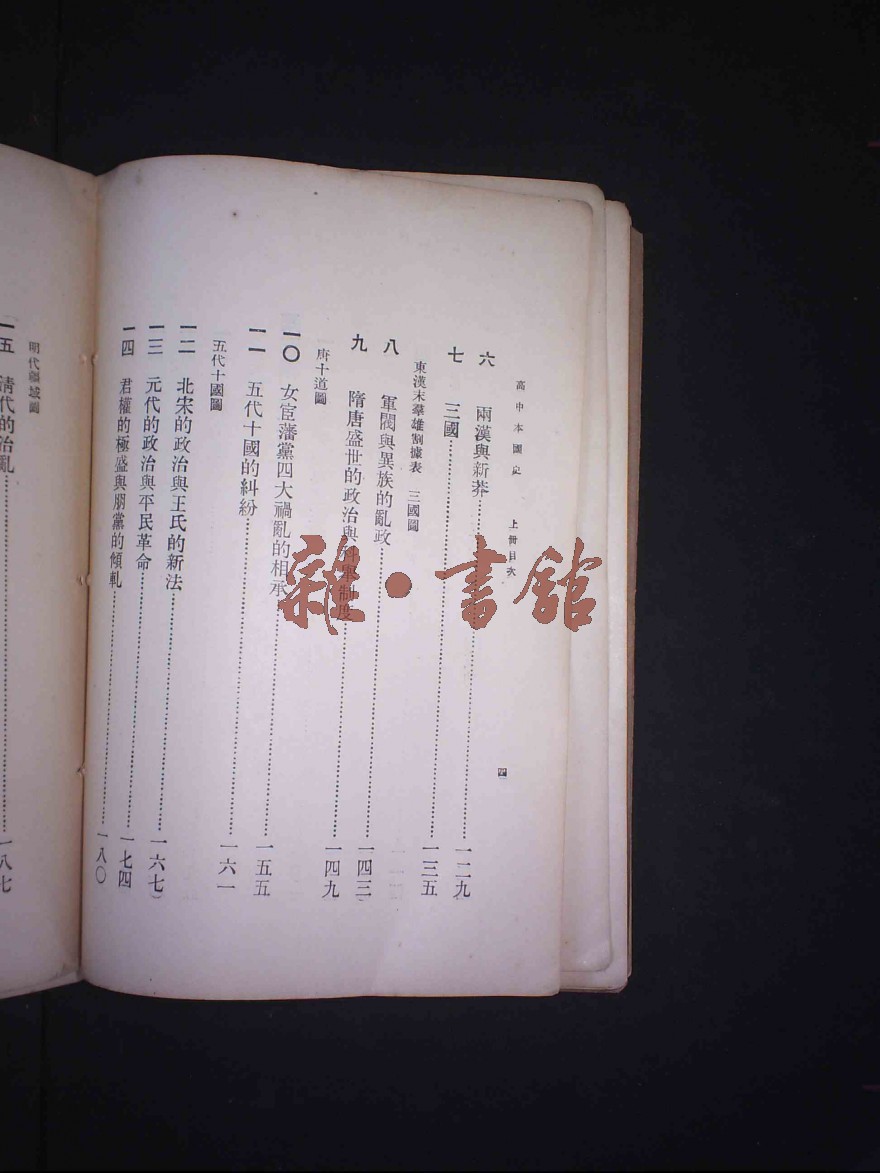 高中本國史 上冊目次
六 兩漢與新莽……一二九
七 三國……一三五
東漢末羣雄割據表 三國圖
八 軍閥與異族的亂政……一四三
九 隋唐盛世的政治與科舉制度……一四九
唐十道圖
一〇 女宦藩黨四大禍亂的相承……一五五
一一 五代十國的糾紛……一六一
五代十國圖
一二 北宋的政治與王氏的新法……一六七
一三 元代的政治與平民革命……一七四
一四 君權的極盛與朋黨的傾軋……一八〇
明代疆域圖
一五 清代的治亂……一八七
雜·書館